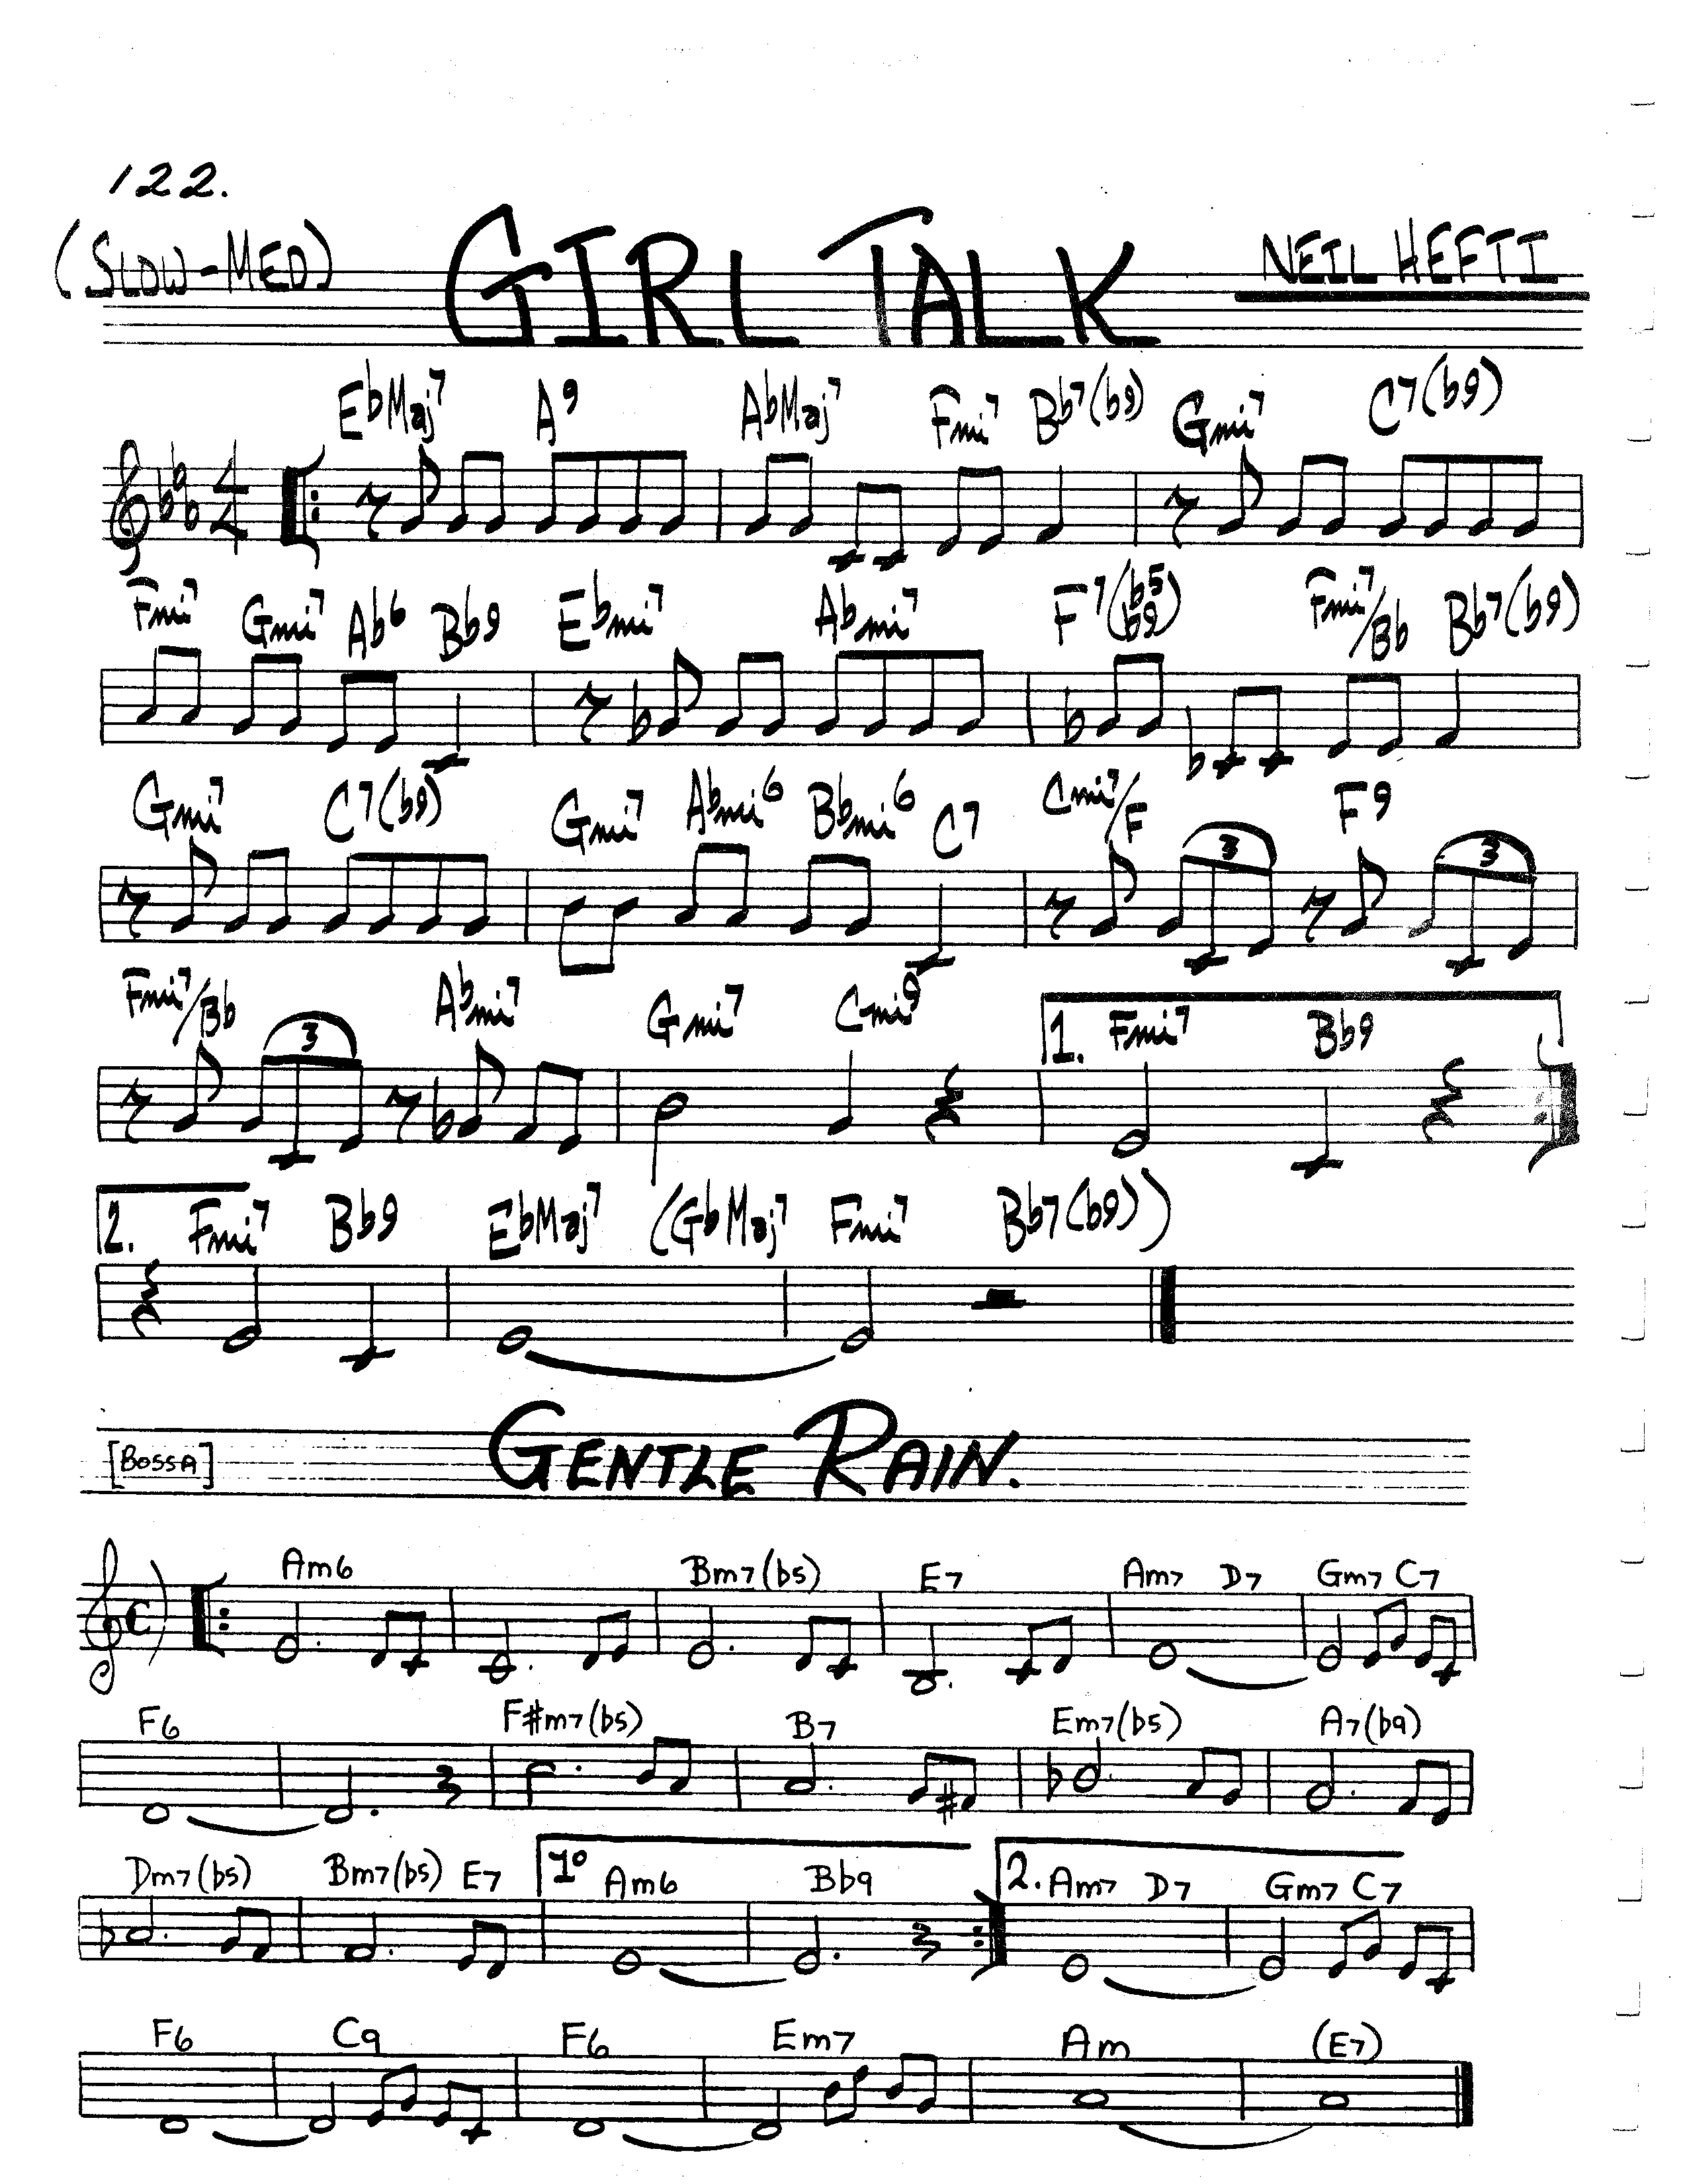 122.
(SLOW-MED) GIRL TALK NEIL HEFTI
EbMaj7 A9 AbMaj7 Fmi7 Bb7(b9) Gmi7 C7(b9)
4/4
Fmi7 Gmi7 Ab6 Bb9 Ebmi7 Abmi7 F7(b5 b9) Fmi7/Bb Bb7(b9)
Gmi7 C7(b9) Gmi7 Abmi6 Bbmi6 C7 Cmi7/F F9
3 3
Fmi7/Bb Abmi7 Gmi7 Cmi9 1. Fmi7 Bb9
3
2. Fmi7 Bb9 EbMaj7 (GbMaj7 Fmi7 Bb7(b9))
[BOSSA] GENTLE RAIN.
Am6 Bm7(b5) E7 Am7 D7 Gm7 C7
F6 F#m7(b5) B7 Em7(b5) A7(b9)
Dm7(b5) Bm7(b5) E7 1º Am6 Bb9 2. Am7 D7 Gm7 C7
F6 C9 F6 Em7 Am (E7)